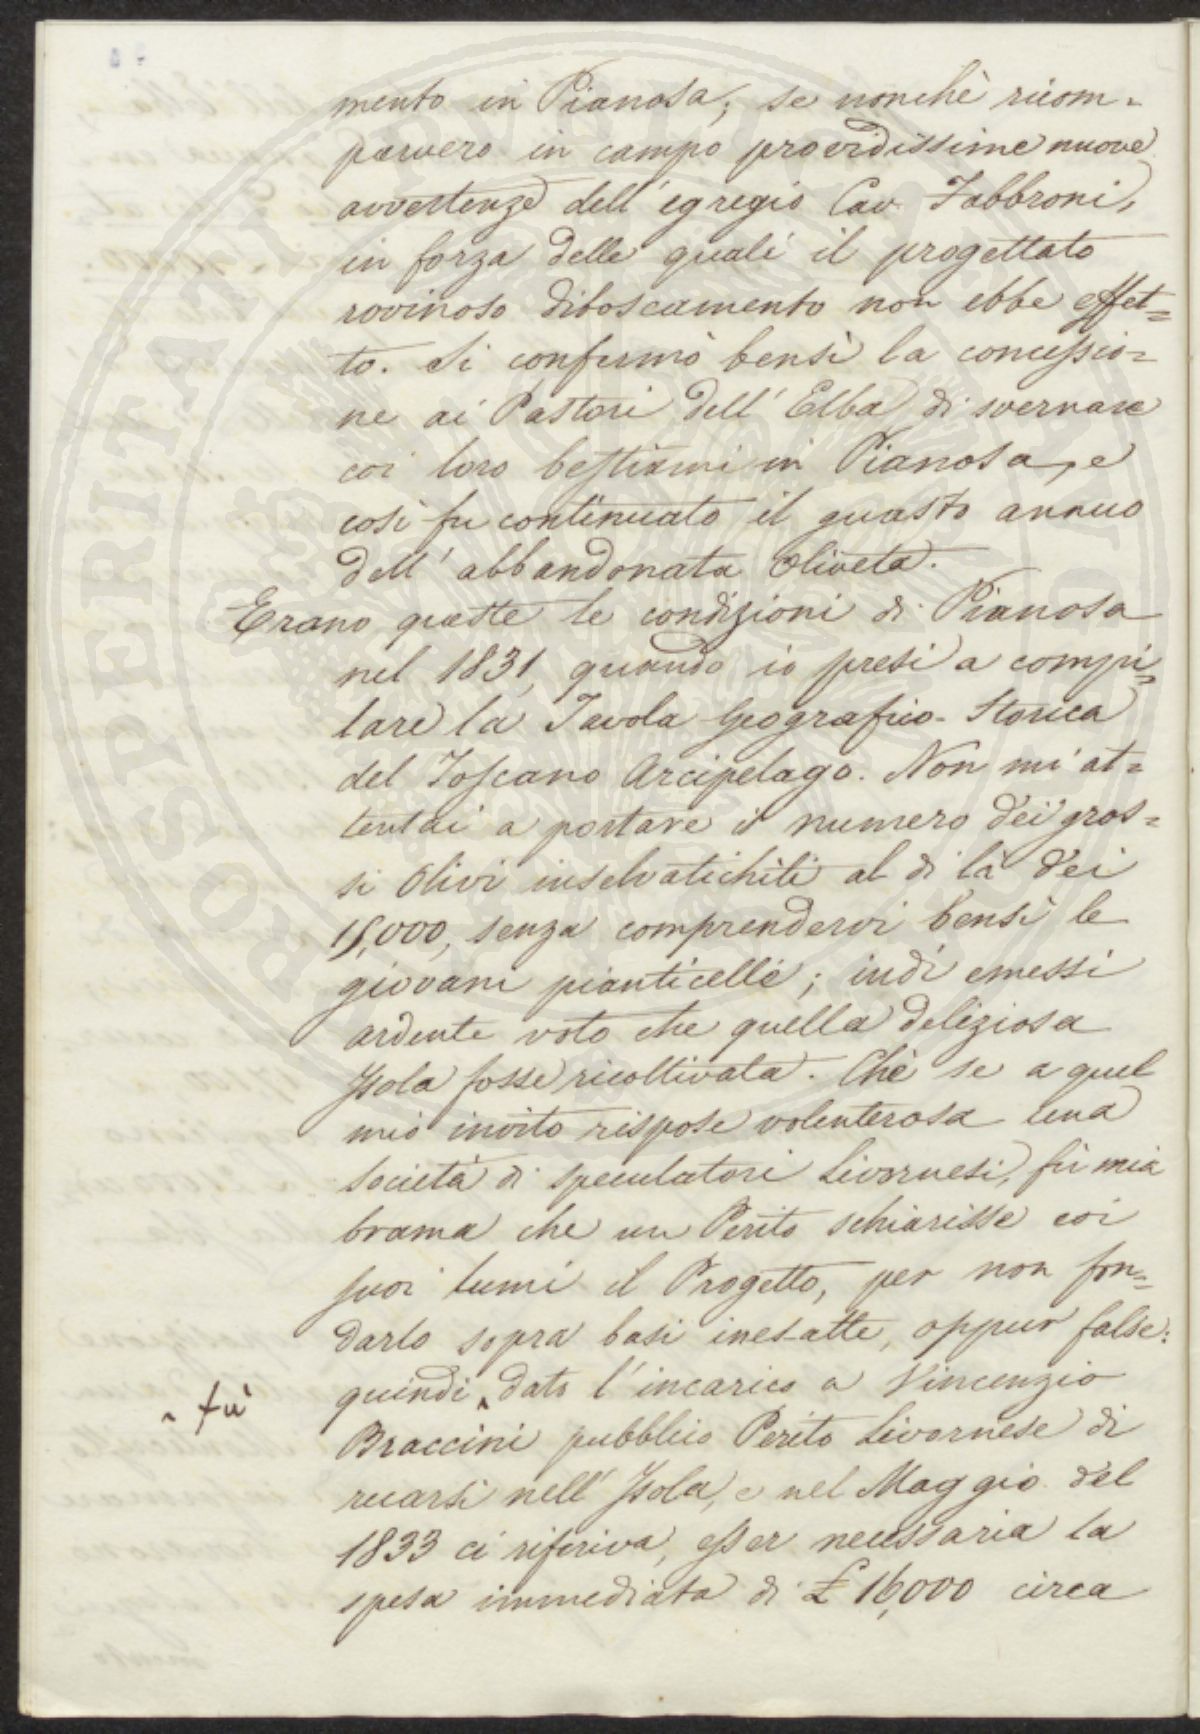 mento in Pianosa; se nonchè ricom-
parvero in campo provvidissime nuove
avvertenze dell'egregio Cav. Fabbroni,
in forza delle quali il progettato
rovinoso diboscamento non ebbe effet=
to. Si confermò bensì la concessio=
ne ai Pastori dell'Elba di svernare
coi loro bestiami in Pianosa, e
così fu continuato il guasto annuo
dell'abbandonata Oliveta.
Erano queste le condizioni di Pianosa
nel 1831, quando io presi a compi=
lare la Tavola Geografico-Storica
del Toscano Arcipelago. Non mi at=
tentai a portare il numero dei gros=
si Olivi inselvatichiti al di là dei
15,000, senza comprendervi bensì le
giovani pianticelle; indi emessi
ardente voto che quella deliziosa
Isola fosse ricoltivata. Chè se a quel
mio invito rispose volenterosa una
Società di speculatori Livornesi, fù mia
brama che un Perito schiarisse coi
suoi lumi il Progetto, per non fon=
darlo sopra basi inesatte, oppur false:
quindi ^ dato l'incarico a Vincenzio
^ fù
Braccini pubblico Perito Livornese di
recarsi nell'Isola, e nel Maggio del
1833 ci riferiva, esser necessaria la
spesa immediata di £ 16,000 circa
PROSPERITATI PUBLICAE AUGENDAE